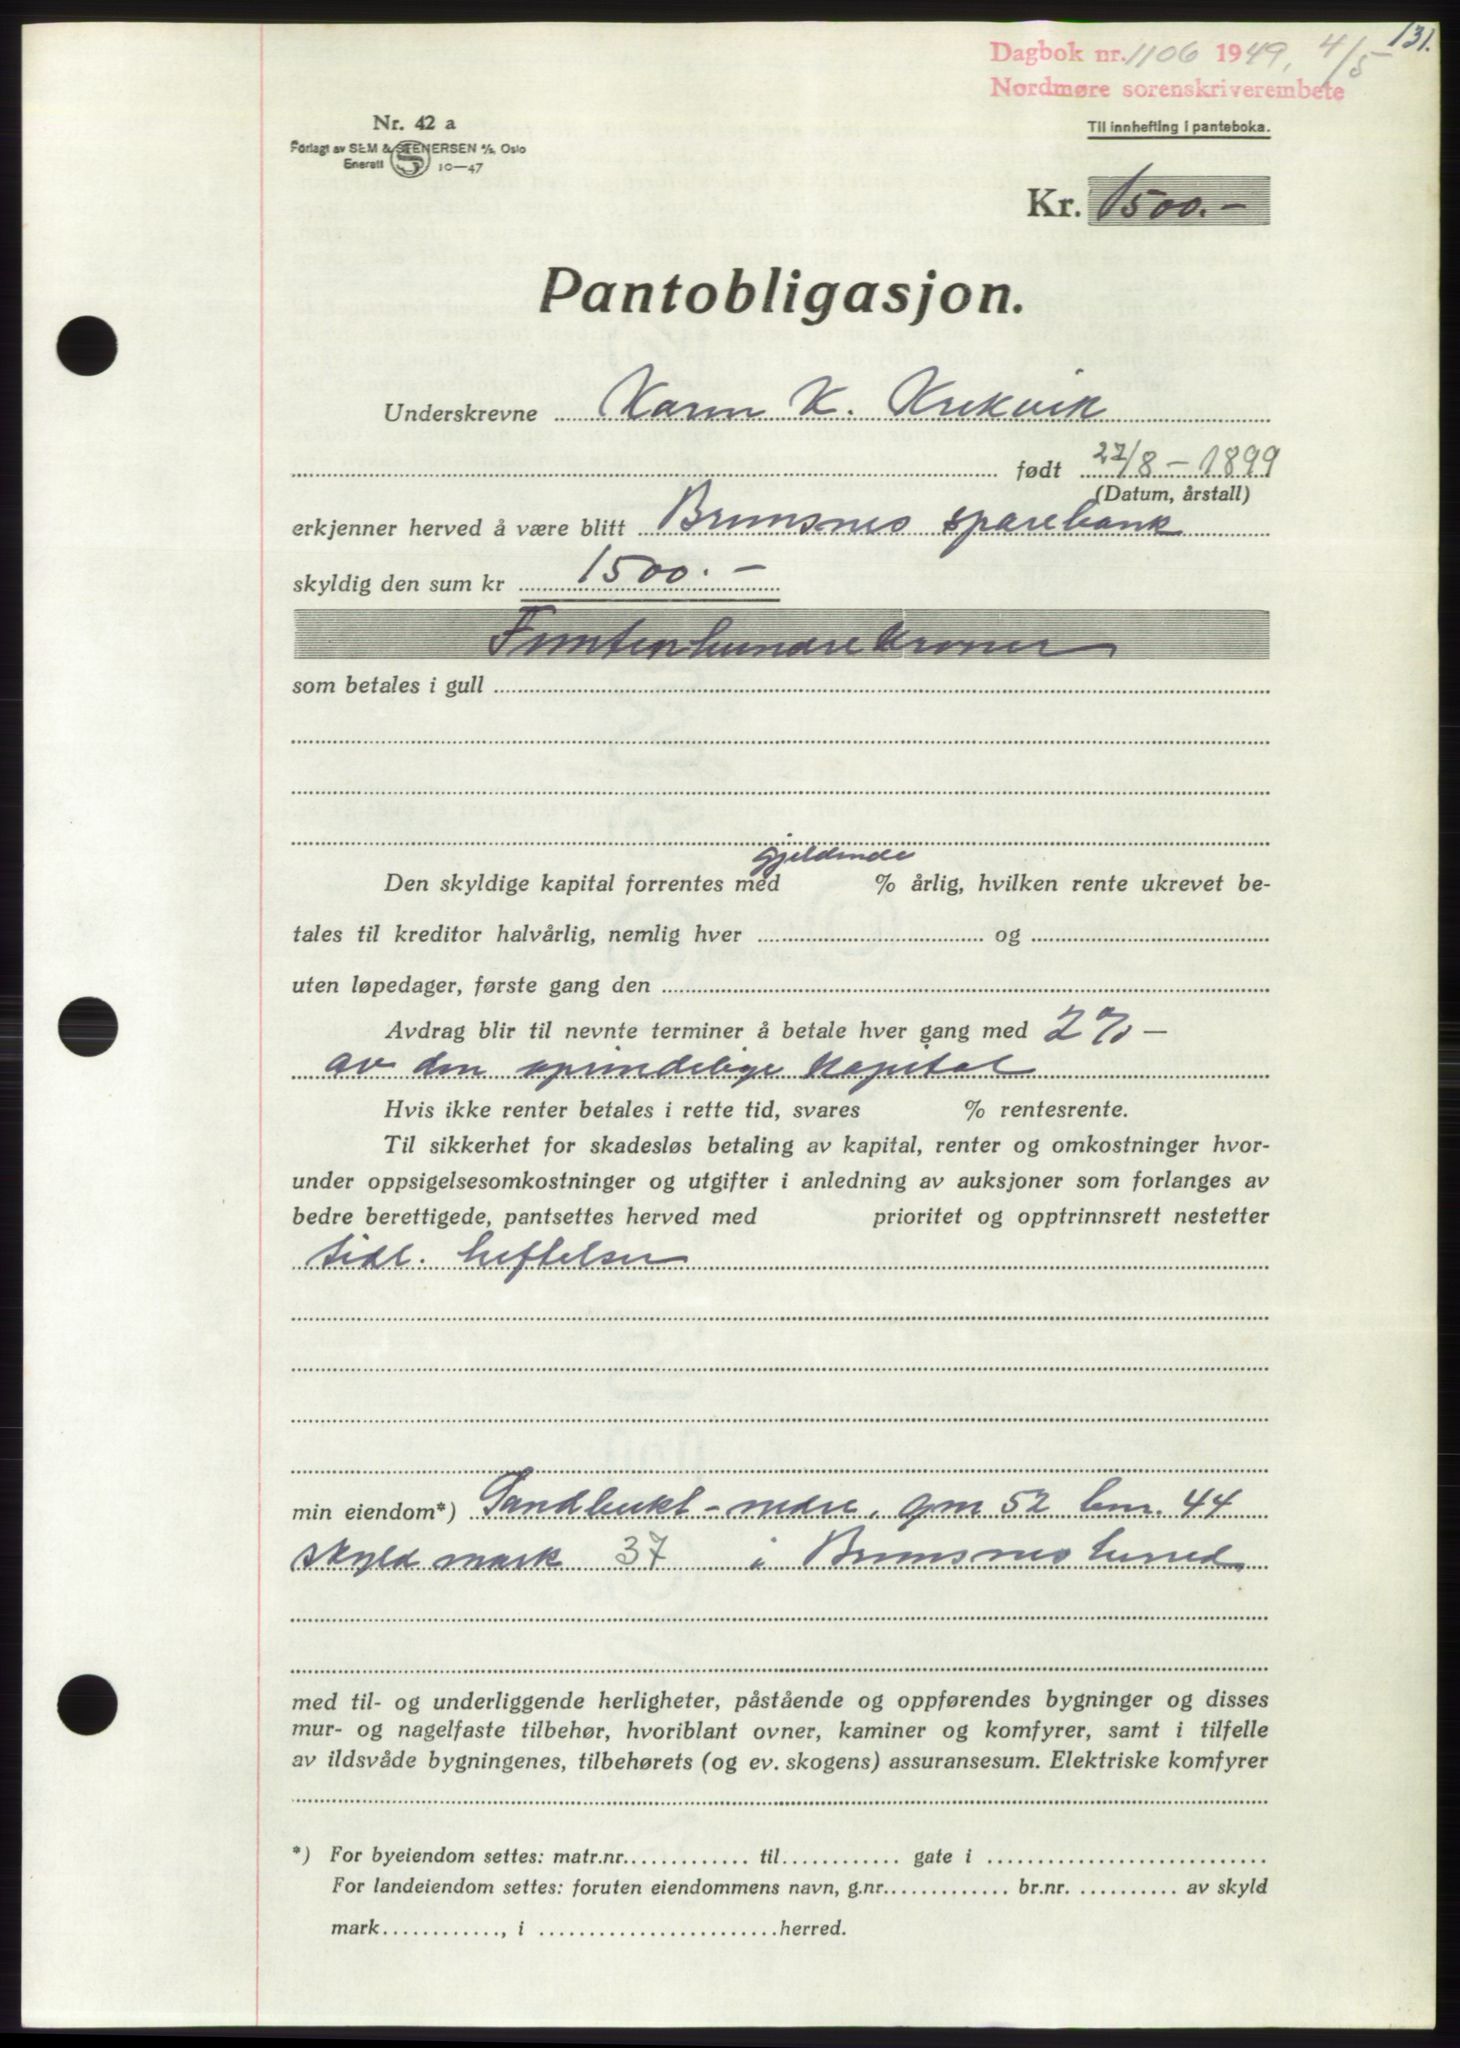 131.
Dagbok nr. 1106 1949, 4/5
Nordmøre sorenskriverembete
Nr. 42 a
Forlagt av SEM & STENERSEN A/S, Oslo
Enerett S 10—47
Til innhefting i panteboka.
Kr. 1500.-
Pantobligasjon.
Underskrevne Karen K. Krekvik
født 27/8 - 1899
(Datum, årstall)
erkjenner herved å være blitt Bremsnes sparebank
skyldig den sum kr 1500.-
Femtenhundre kroner
som betales i gull
gjeldende
Den skyldige kapital forrentes med % årlig, hvilken rente ukrevet be-
tales til kreditor halvårlig, nemlig hver og
uten løpedager, første gang den
Avdrag blir til nevnte terminer å betale hver gang med 2% -
av den oprindelige kapital
Hvis ikke renter betales i rette tid, svares % rentesrente.
Til sikkerhet for skadesløs betaling av kapital, renter og omkostninger hvor-
under oppsigelsesomkostninger og utgifter i anledning av auksjoner som forlanges av
bedre berettigede, pantsettes herved med prioritet og opptrinnsrett nestetter
tidl. heftelser
min eiendom*) Sandbukt - nedre, gnr 52 bnr. 44
skyld mark 37 i Bremsnes herred
med til- og underliggende herligheter, påstående og oppførendes bygninger og disses
mur- og nagelfaste tilbehør, hvoriblant ovner, kaminer og komfyrer, samt i tilfelle
av ildsvåde bygningenes, tilbehørets (og ev. skogens) assuransesum. Elektriske komfyrer
*) For byeiendom settes: matr.nr. til gate i
For landeiendom settes: foruten eiendommens navn, g.nr. br.nr. av skyld
mark , i herred.